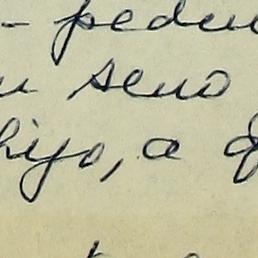 - pedu
seno
hijo, a